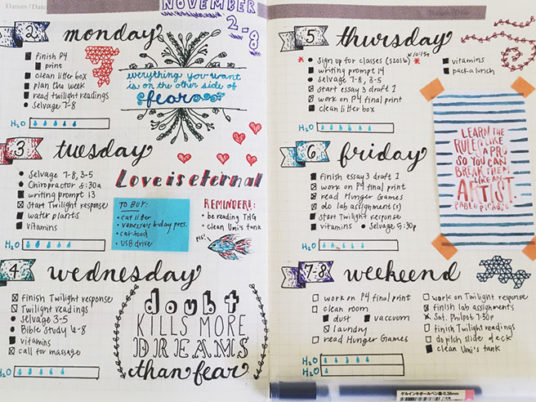 NOVEMBER
2-8
2
monday
finish P4
print
clean litter box
plan the week
read twilight readings
Selvage 7-8
H2O
everything you want
is on the other side of
fear
3
tuesday
Selvage 7-8, 3-5
Chiropractor 5:30a
writing prompt 13
start Twilight response
water plants
vitamins
H2O
Love is eternal
TO BUY:
cat litter
cat food
USB drive
REMINDERS:
be reading THG
clean Umi's tank
4
wednesday
finish Twilight response
Twilight readings
Selvage 3-5
Bible Study 6-8
vitamins
call for massage
H2O
doubt
KILLS MORE
DREAMS
than fear
5
thursday
Sign up for classes (S2016)
writing prompt 14
selvage 7-8, 3-5
start essay 3 draft 1
work on P4 final print
clean litter box
vitamins
pack a lunch
H2O
6
friday
finish essay 3 draft 1
work on P4 final print
read Hunger Games
do lab assignment(s)
start Twilight response
vitamins
Selvage 5:30p
H2O
LEARN THE
RULES LIKE
A PRO,
SO YOU CAN
BREAK THEM
LIKE AN
ARTIST
PABLO PICASSO
7-8
weekend
work on P4 final print
clean room
dust
vaccuum
laundry
read Hunger Games
work on Twilight response
finish lab assignments
Sat. Philos 7:30p
finish Twilight readings
do pitch slide deck
clean Umi's tank
H2O
H2O